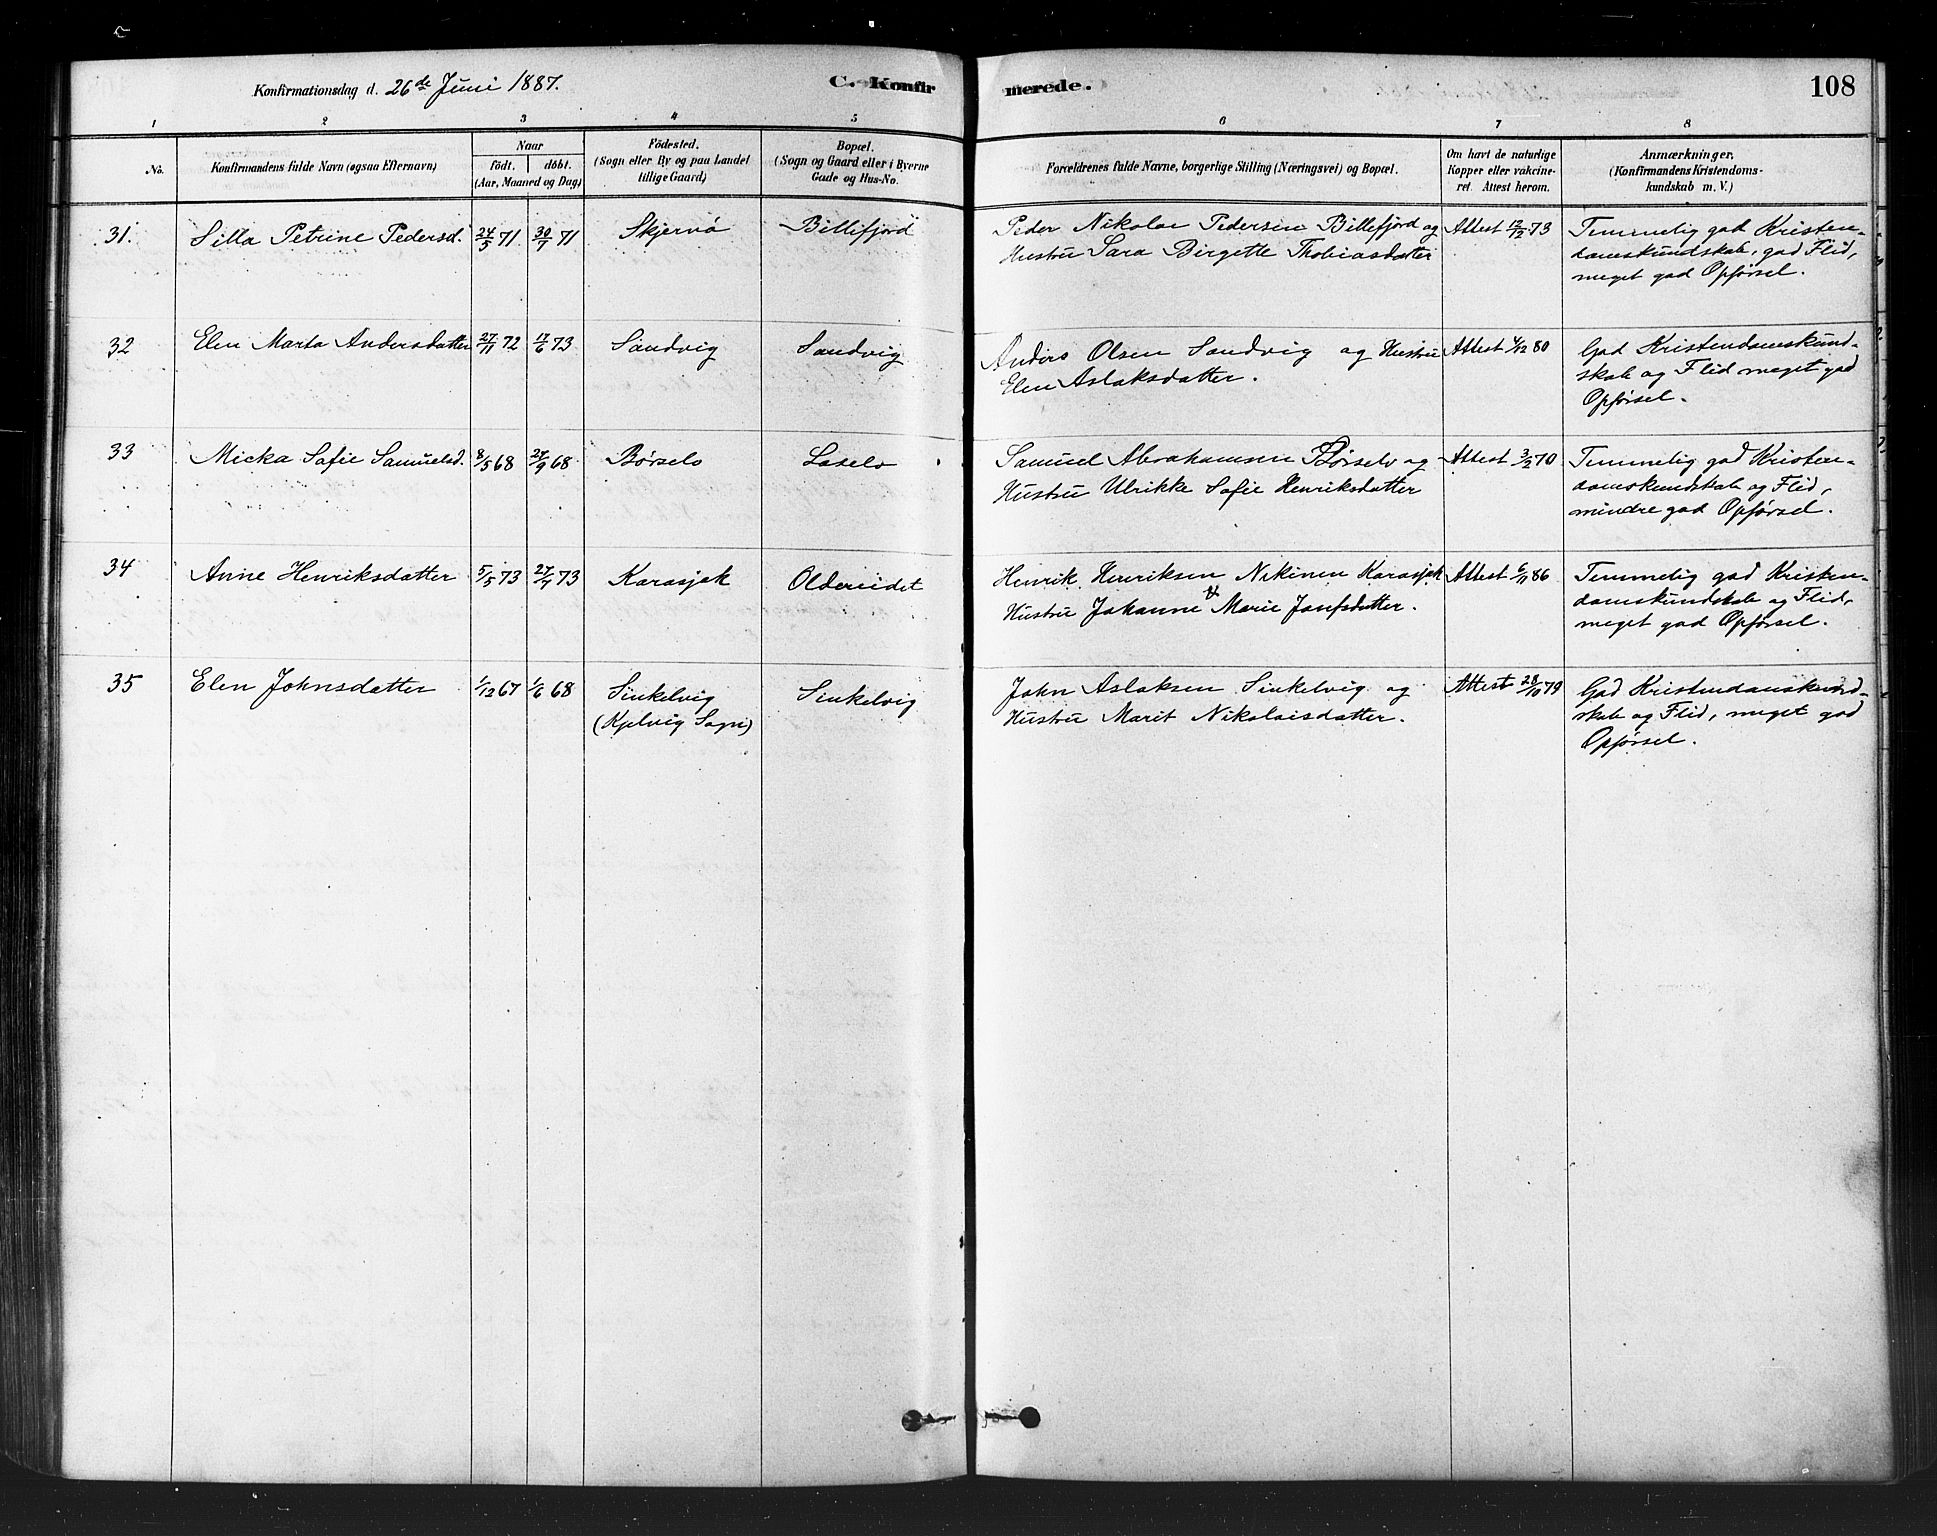 Konfirmationsdag d. 26de Juni 1887.
C. Konfirmerede.
108
1 2 3 4 5 6 7 8
No.
Konfirmandens fulde Navn (ogsaa Efternavn)
Naar
födt. döbt.
(Aar, Maaned og Dag)
Födested.
(Sogn eller By og paa Landet
tillige Gaard)
Bopæl.
(Sogn og Gaard eller i Byerne
Gade og Hus-No.
Forældrenes fulde Navne, borgerlige Stilling (Næringsvei) og Bopæl.
Om havt de naturlige
Kopper eller vakcine-
ret. Attest herom.
Anmærkninger.
(Konfirmandens Kristendoms-
kundskab m. V.)
31. Silla Petrine Pedersd. 24/5 71 30/7 71 Skjervö Billefjord Peder Nikolai Pedersen Billefjord og Attest 12/12 73 Temmelig god Kristen-
Hustru Sara Birgette Thobiasdatter domskundskab, god Flid,
meget god Opførsel.
32 Elen Marta Andersdatter 27/11 72 17/6 73 Sandvig Sandvig Anders Olsen Sandvig og Hustru Attest 4/12 80 God Kristendomskund-
Elen Aslaksdatter. skab og Flid meget god
Opførsel.
33 Micka Sofie Samuelsd. 8/5 68 27/9 68 Börselv Laselv Samuel Abrahamsen Börselv og Attest 3/2 70 Temmelig god Kristen-
Hustru Ulrikke Sofie Henriksdatter domskundskab og Flid,
mindre god Opførsel.
34 Anne Henriksdatter 5/5 73 27/7 73 Karasjok Oldereidet Henrik Henriksen Nikinen Karasjok Attest 6/11 86 Temmelig god Kristen-
Hustru Johanne Marie Josefsdatter. domskundskab og Flid,
meget god Opførsel.
35 Elen Johnsdatter 1/12 67 1/6 68 Sinkelvig Sinkelvig John Aslaksen Sinkelvig og Attest 28/10 79 God Kristendomskund-
(Kjelvig Sogn) Hustru Marit Nikolaisdatter. skab og Flid, meget god
Opførsel.